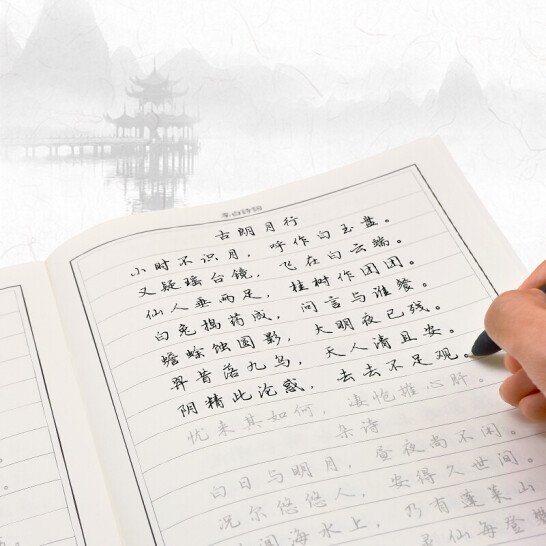 李白诗词
古朗月行
小时不识月，呼作白玉盘。
又疑瑶台镜，飞在白云端。
仙人垂两足，桂树作团团。
白兔捣药成，问言与谁餐。
蟾蜍蚀圆影，大明夜已残。
羿昔落九乌，天人清且安。
阴精此沦惑，去去不足观。
忧来其如何，凄怆摧心肝。
杂诗
白日与明月，昼夜尚不闲。
况尔悠悠人，安得久世间。
闻海水上，乃有蓬莱山
灵仙每登